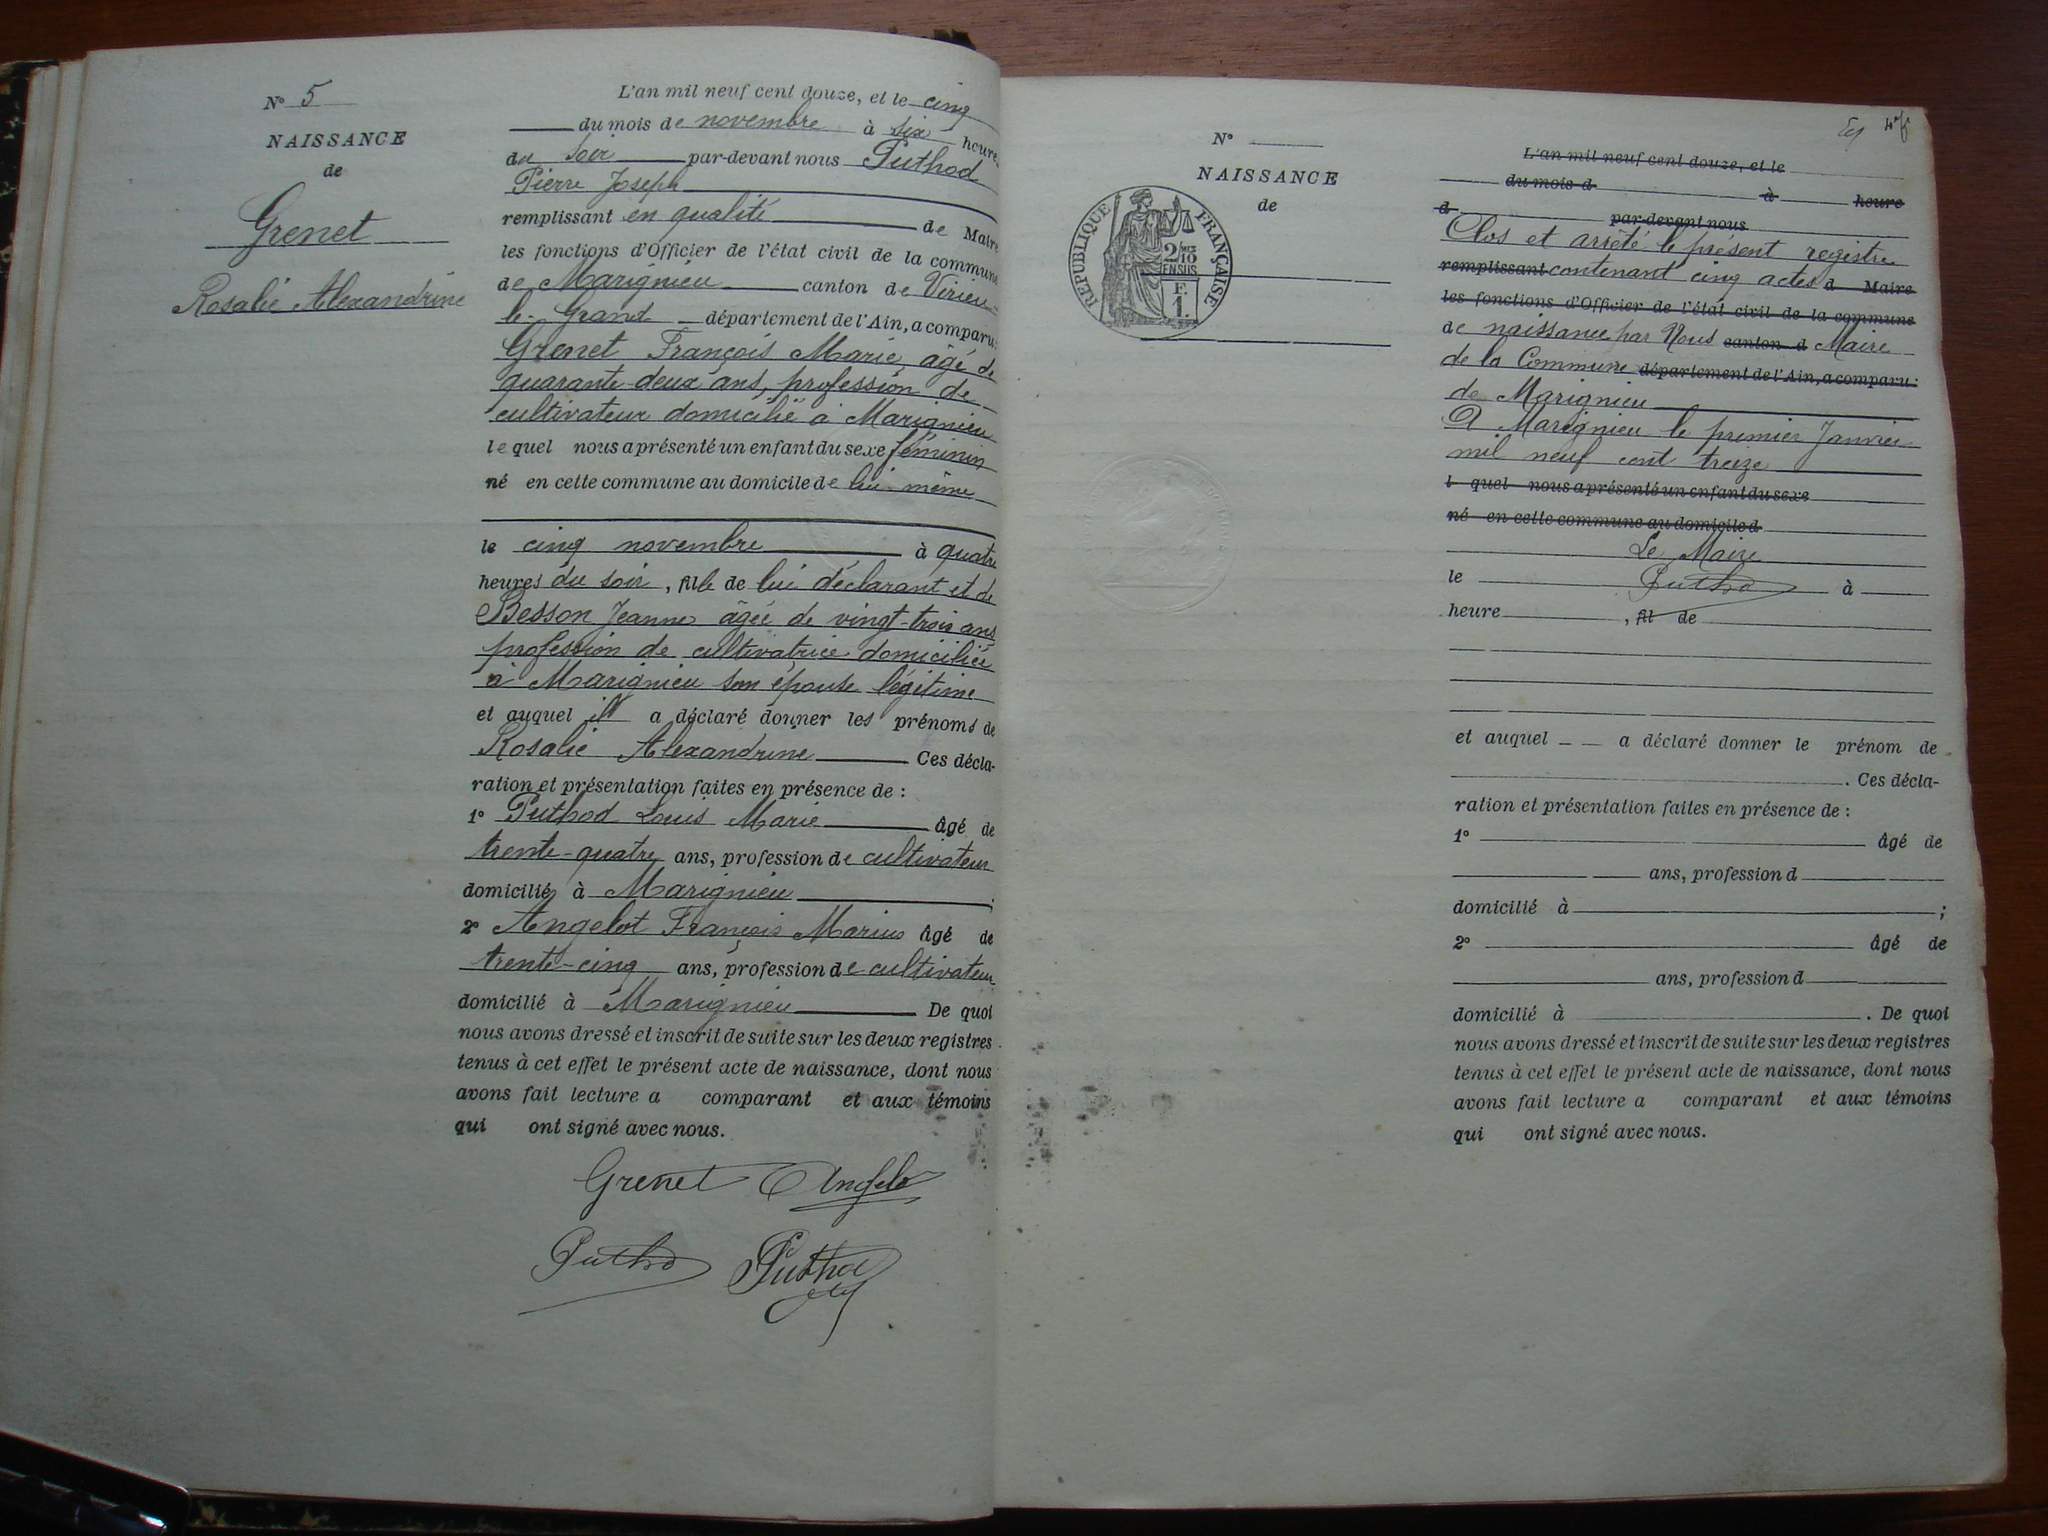 N° 5
NAISSANCE
de
Grenet
Rosalie Alexandrine
L'an mil neuf cent douze, et le cinq
du mois de novembre à six heures
du soir par-devant nous Puthod
Pierre Joseph
remplissant en qualité de Maire
les fonctions d'Officier de l'état civil de la commune
de Marignieu canton de Virieu-
le-Grand département de l'Ain, a comparu:
Grenet François Marie, âgé de
quarante-deux ans, profession de
cultivateur domicilié à Marignieu
lequel nous a présenté un enfant du sexe féminin
né en cette commune au domicile de lui-même
le cinq novembre à quatre
heures du soir, fille de lui déclarant et de
Besson Jeanne âgée de vingt-trois ans
profession de cultivatrice domiciliée
à Marignieu son épouse légitime
et auquel il a déclaré donner les prénoms de
Rosalie Alexandrine Ces décla-
ration et présentation faites en présence de :
1° Puthod Louis Marie âgé de
trente-quatre ans, profession de cultivateur
domicilié à Marignieu ;
2° Angelot François Marius âgé de
trente-cinq ans, profession de cultivateur
domicilié à Marignieu De quoi
nous avons dressé et inscrit de suite sur les deux registres
tenus à cet effet le présent acte de naissance, dont nous
avons fait lecture a comparant et aux témoins
qui ont signé avec nous.
Grenet Angelo
Putho Putho
N°
NAISSANCE
de
REPUBLIQUE FRANÇAISE
2/10
EN SUS
F.
1.
L'an mil neuf cent douze, et le
du mois d à heure
d par-devant nous
Clos et arrêté le présent registre
remplissant contenant cinq actes d Maire
les fonctions d'Officier de l'état civil de la commune
de naissance par Nous canton d Maire
de la Commune département de l'Ain, a comparu:
de Marignieu
A Marignieu le premier Janvier
mil neuf cent treize
l quel nous a présenté un enfant du sexe
né en cette commune au domicile d
Le Maire
le Putho à
heure , fil de
et auquel a déclaré donner le prénom de
. Ces décla-
ration et présentation faites en présence de :
1° âgé de
ans, profession d
domicilié à ;
2° âgé de
ans, profession d
domicilié à . De quoi
nous avons dressé et inscrit de suite sur les deux registres
tenus à cet effet le présent acte de naissance, dont nous
avons fait lecture a comparant et aux témoins
qui ont signé avec nous.